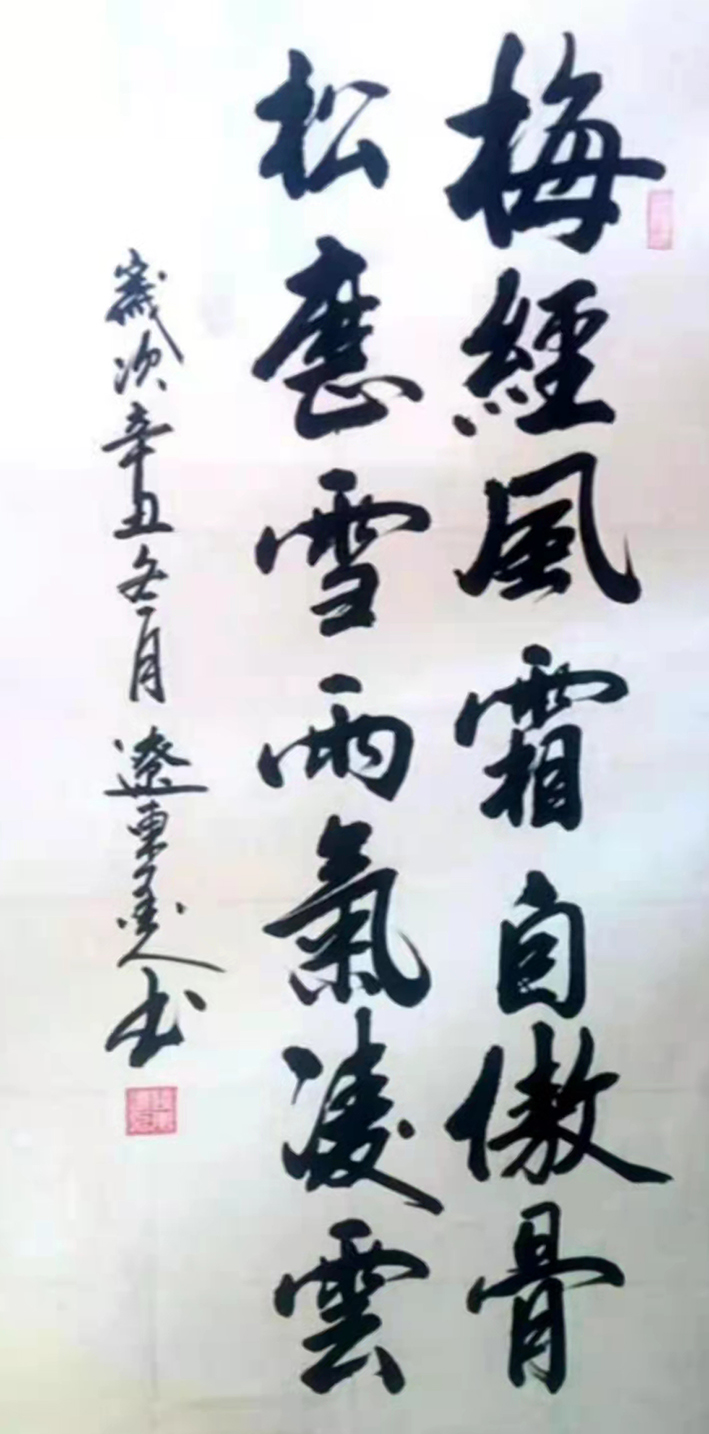 梅經風霜自傲骨
松歷雪雨氣凌雲
歲次辛丑冬月遼東人书